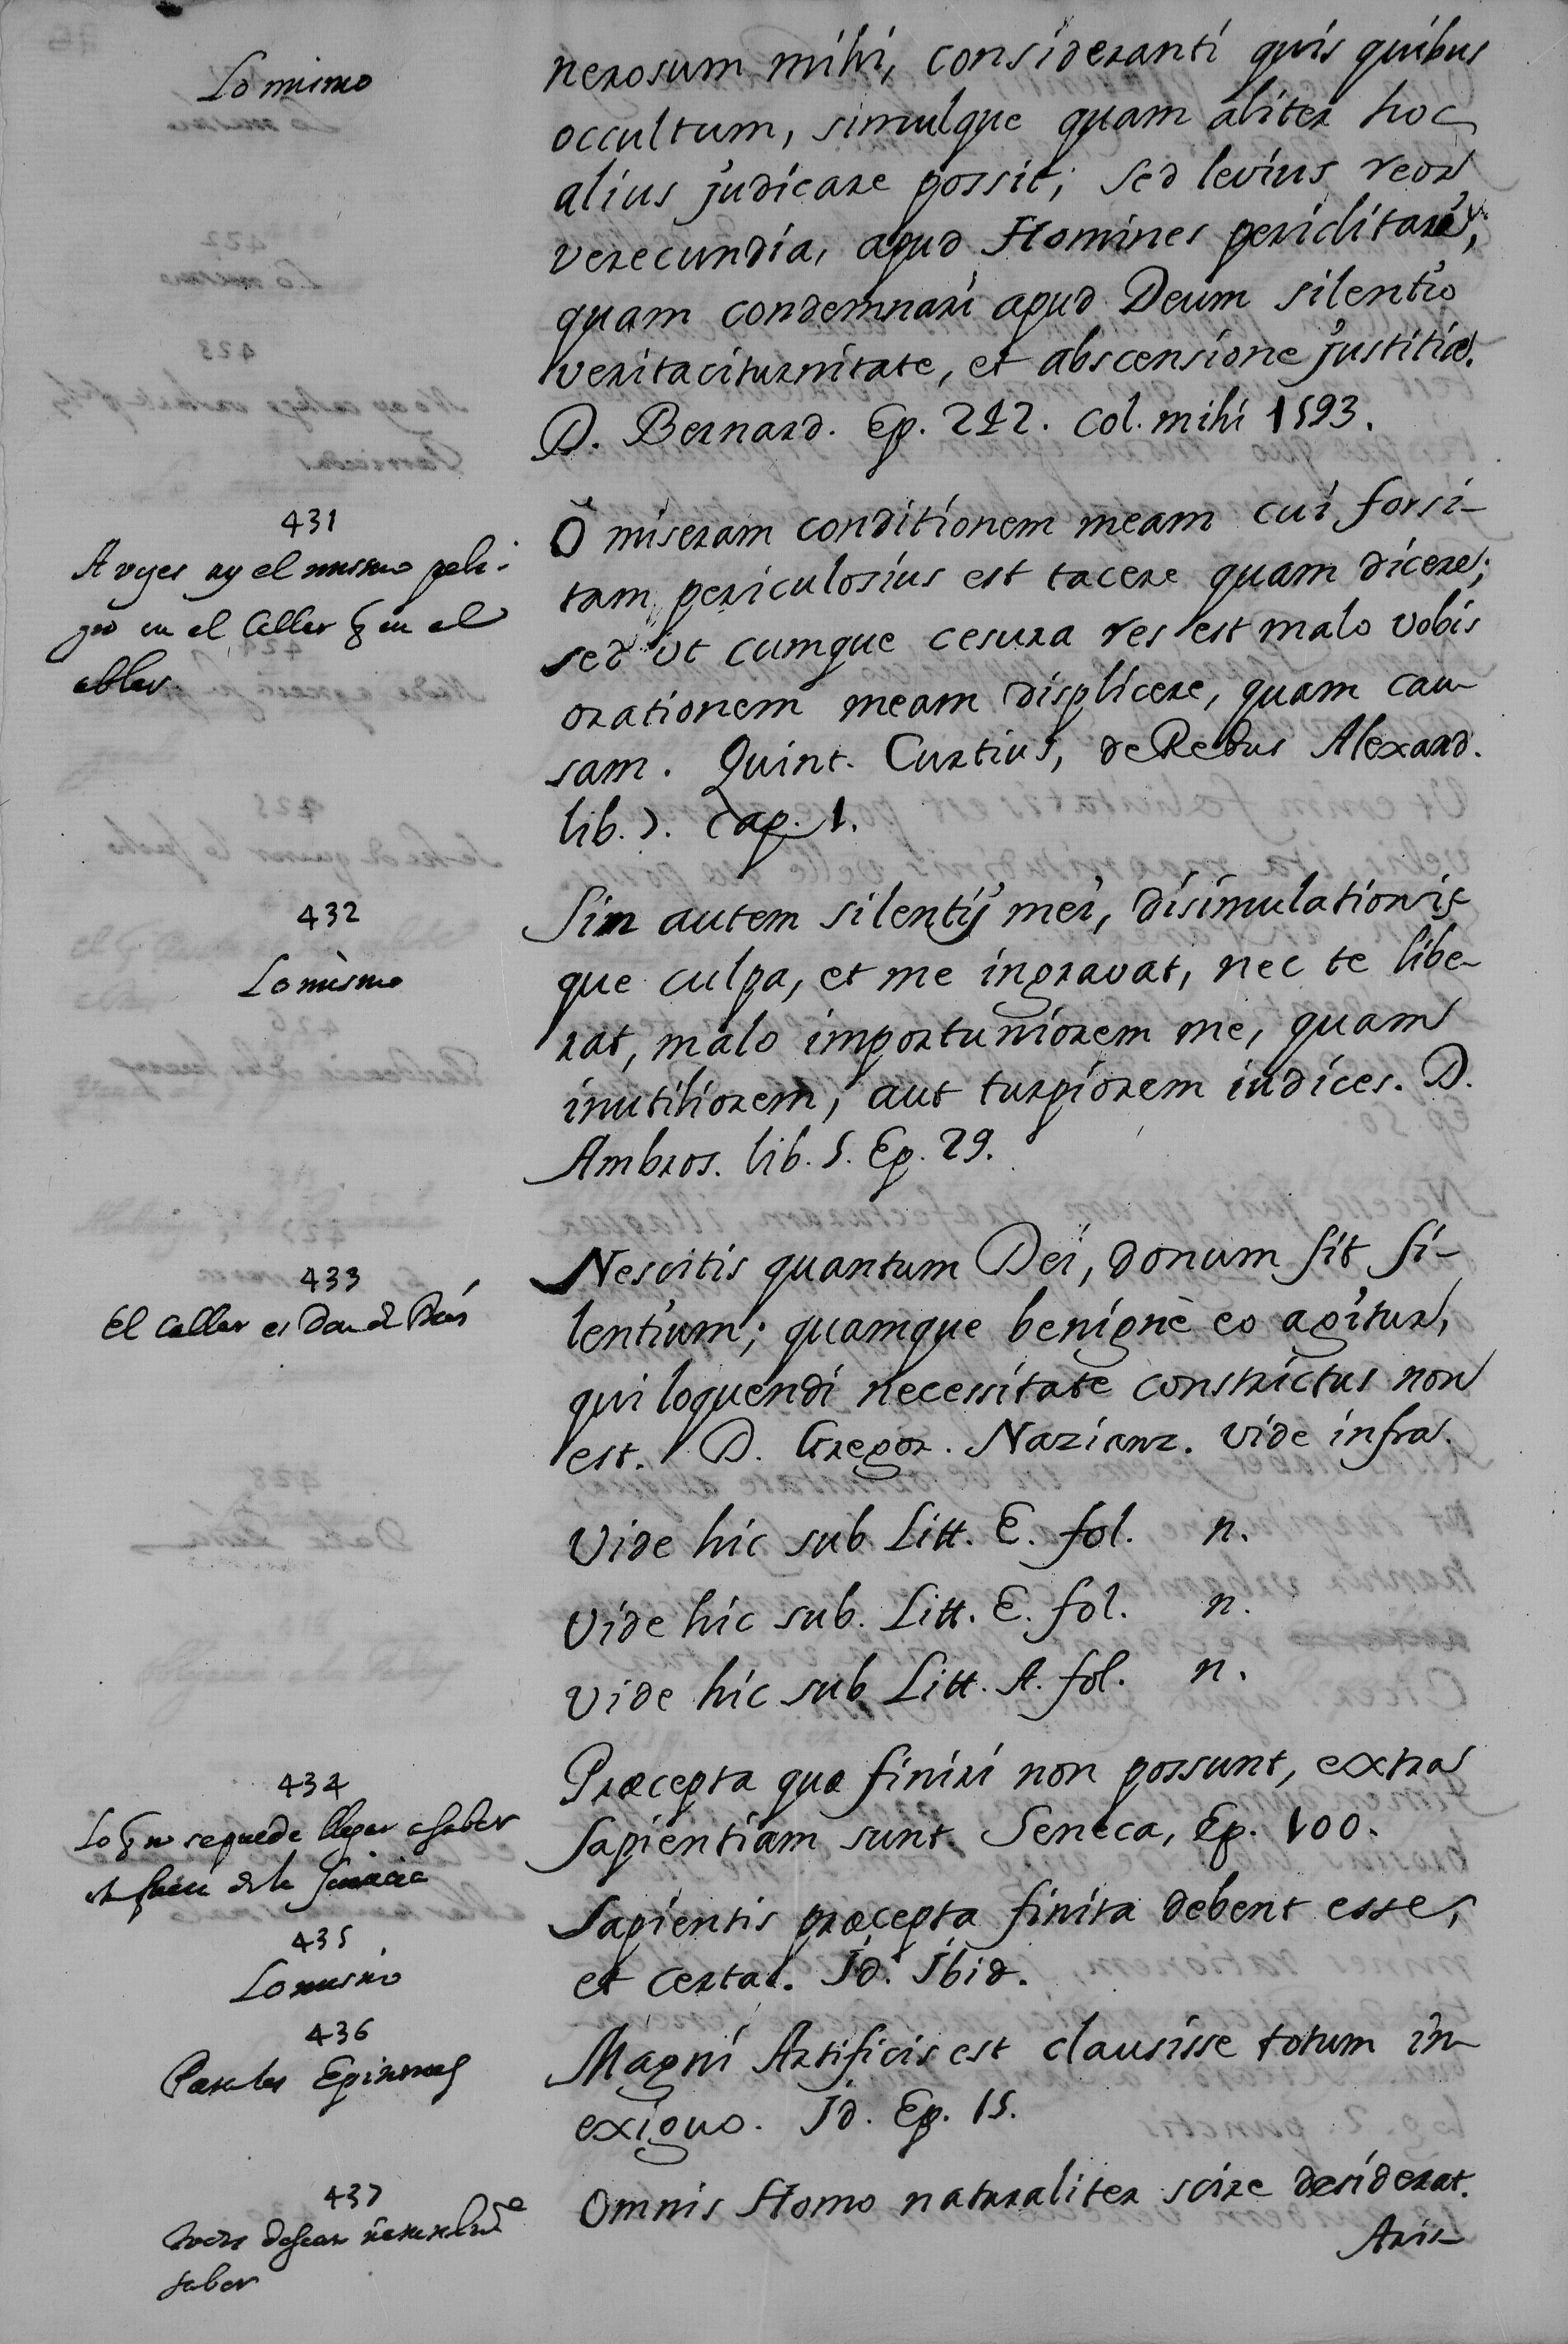 Lo mismo
nerosum mihi, consideranti quis quibus
occultum, simulque quam aliter hoc
alius judicare possit; sed levius reor
verecundia, apud Homines periclitari,
quam condemnari apud Deum silentio
veritaciturnitate, et abscensione justitiæ.
D. Bernard. Ep. 242. Col. mihi 1593.
431
A veçes ay el mismo peli-
gro en el Callar q̃ en el
ablar
O miseram conditionem meam cui forsi-
tam periculosius est tacere quam dicere;
sed ut cumque cesura res est malo vobis
orationem meam displicere, quam cau-
sam. Quint. Curtius, de Rebus Alexand.
lib. 7. cap. 1.
432
Lo mismo
Sin autem silentij mei, disimulationis
que culpa, et me ingravat, nec te libe-
rat, malo importuniorem me, quam
inutiliorem, aut turpiorem iudices. D.
Ambros. lib. 5. Ep. 29.
433
El Callar es Don de Dios
Nescitis quantum Dei, donum sit si-
lentium; quamque benignè eo agitur,
qui loquendi necessitate constrictus non
est. D. Gregor. Nazianz. vide infra.
Vide hic sub Litt. E. fol. n.
Vide hic sub. Litt. E. fol. n.
Vide hic sub Litt. A. fol. n.
434
Lo q̃ no se puede llegar a saber
Præcepta quæ finiri non possunt, extra
Sapientiam sunt. Seneca, Ep. 100.
435
Lo mismo
Sapientis præcepta finita debent esse,
et certa. Id. Ibid.
436
Para los Epitomes
Magni Artificis est clausisse totum in
exiguo. Id. Ep. 15.
437
saber
Omnis Homo naturaliter scire desiderat.
Aris-